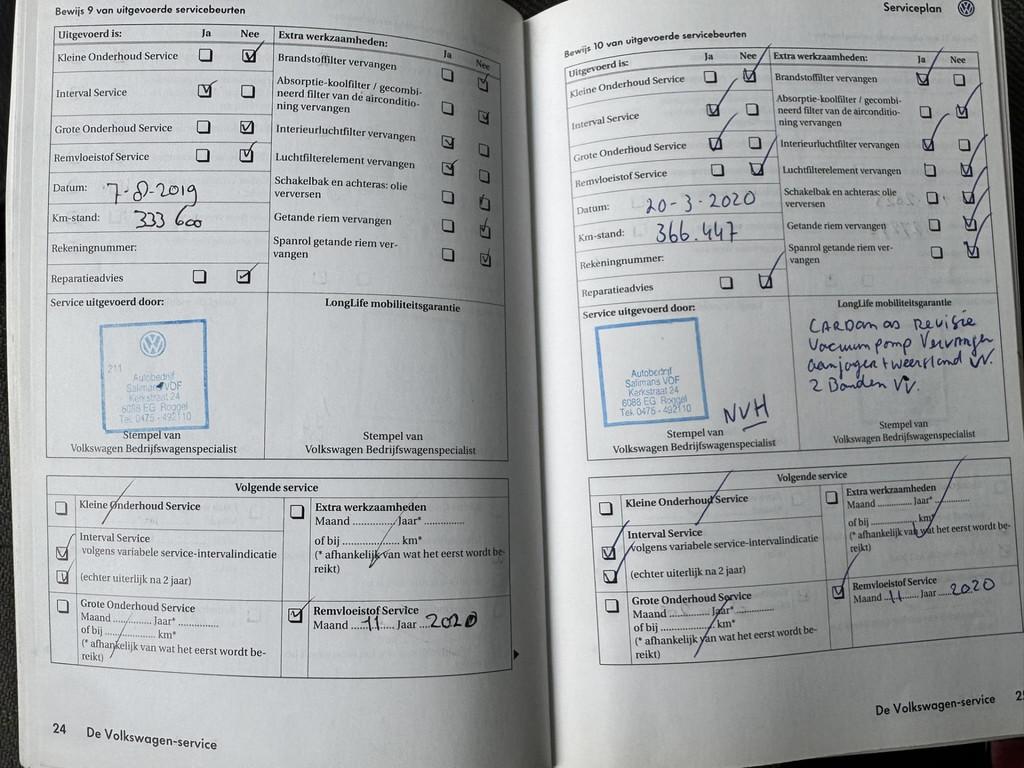 Bewijs 9 van uitgevoerde servicebeurten
Uitgevoerd is: Ja Nee
Kleine Onderhoud Service
Interval Service
Grote Onderhoud Service
Remvloeistof Service
Datum: 7-8-2019
Km-stand: 333 600
Rekeningnummer:
Reparatieadvies
Extra werkzaamheden: Ja Nee
Brandstoffilter vervangen
Absorptie-koolfilter / gecombi-
neerd filter van de airconditio-
ning vervangen
Interieurluchtfilter vervangen
Luchtfilterelement vervangen
Schakelbak en achteras: olie
verversen
Getande riem vervangen
Spanrol getande riem ver-
vangen
Service uitgevoerd door:
211
Autobedrijf
Salimans VDF
Kerkstraat 24
6088 EG Roggel
Tel. 0475 - 492110
Stempel van
Volkswagen Bedrijfswagenspecialist
LongLife mobiliteitsgarantie
Stempel van
Volkswagen Bedrijfswagenspecialist
Volgende service
Kleine Onderhoud Service
Interval Service
volgens variabele service-intervalindicatie
(echter uiterlijk na 2 jaar)
Grote Onderhoud Service
Maand ............ Jaar* ..............
of bij .................. km*
(* afhankelijk van wat het eerst wordt be-
reikt)
Extra werkzaamheden
Maand ............ Jaar* ..............
of bij .................. km*
(* afhankelijk van wat het eerst wordt be-
reikt)
Remvloeistof Service
Maand ....11.... Jaar ...2020
24 De Volkswagen-service
Serviceplan
Bewijs 10 van uitgevoerde servicebeurten
Uitgevoerd is: Ja Nee
Kleine Onderhoud Service
Interval Service
Grote Onderhoud Service
Remvloeistof Service
Datum: 20-3-2020
Km-stand: 366.447
Rekeningnummer:
Reparatieadvies
Extra werkzaamheden: Ja Nee
Brandstoffilter vervangen
Absorptie-koolfilter / gecombi-
neerd filter van de airconditio-
ning vervangen
Interieurluchtfilter vervangen
Luchtfilterelement vervangen
Schakelbak en achteras: olie
verversen
Getande riem vervangen
Spanrol getande riem ver-
vangen
Service uitgevoerd door:
Autobedrijf
Salimans VDF
Kerkstraat 24
6088 EG Roggel
Tel. 0475 - 492110
NVH
Stempel van
Volkswagen Bedrijfswagenspecialist
LongLife mobiliteitsgarantie
CARDan as Revisie
Vacuumpomp Vervangen
aanjager + weerstand VV.
2 Banden VV.
Stempel van
Volkswagen Bedrijfswagenspecialist
Volgende service
Kleine Onderhoud Service
Interval Service
volgens variabele service-intervalindicatie
(echter uiterlijk na 2 jaar)
Grote Onderhoud Service
Maand ............ Jaar* ..............
of bij .................. km*
(* afhankelijk van wat het eerst wordt be-
reikt)
Extra werkzaamheden
Maand ............ Jaar* ..............
of bij .................. km*
(* afhankelijk van wat het eerst wordt be-
reikt)
Remvloeistof Service
Maand ...11..... Jaar ...2020
De Volkswagen-service